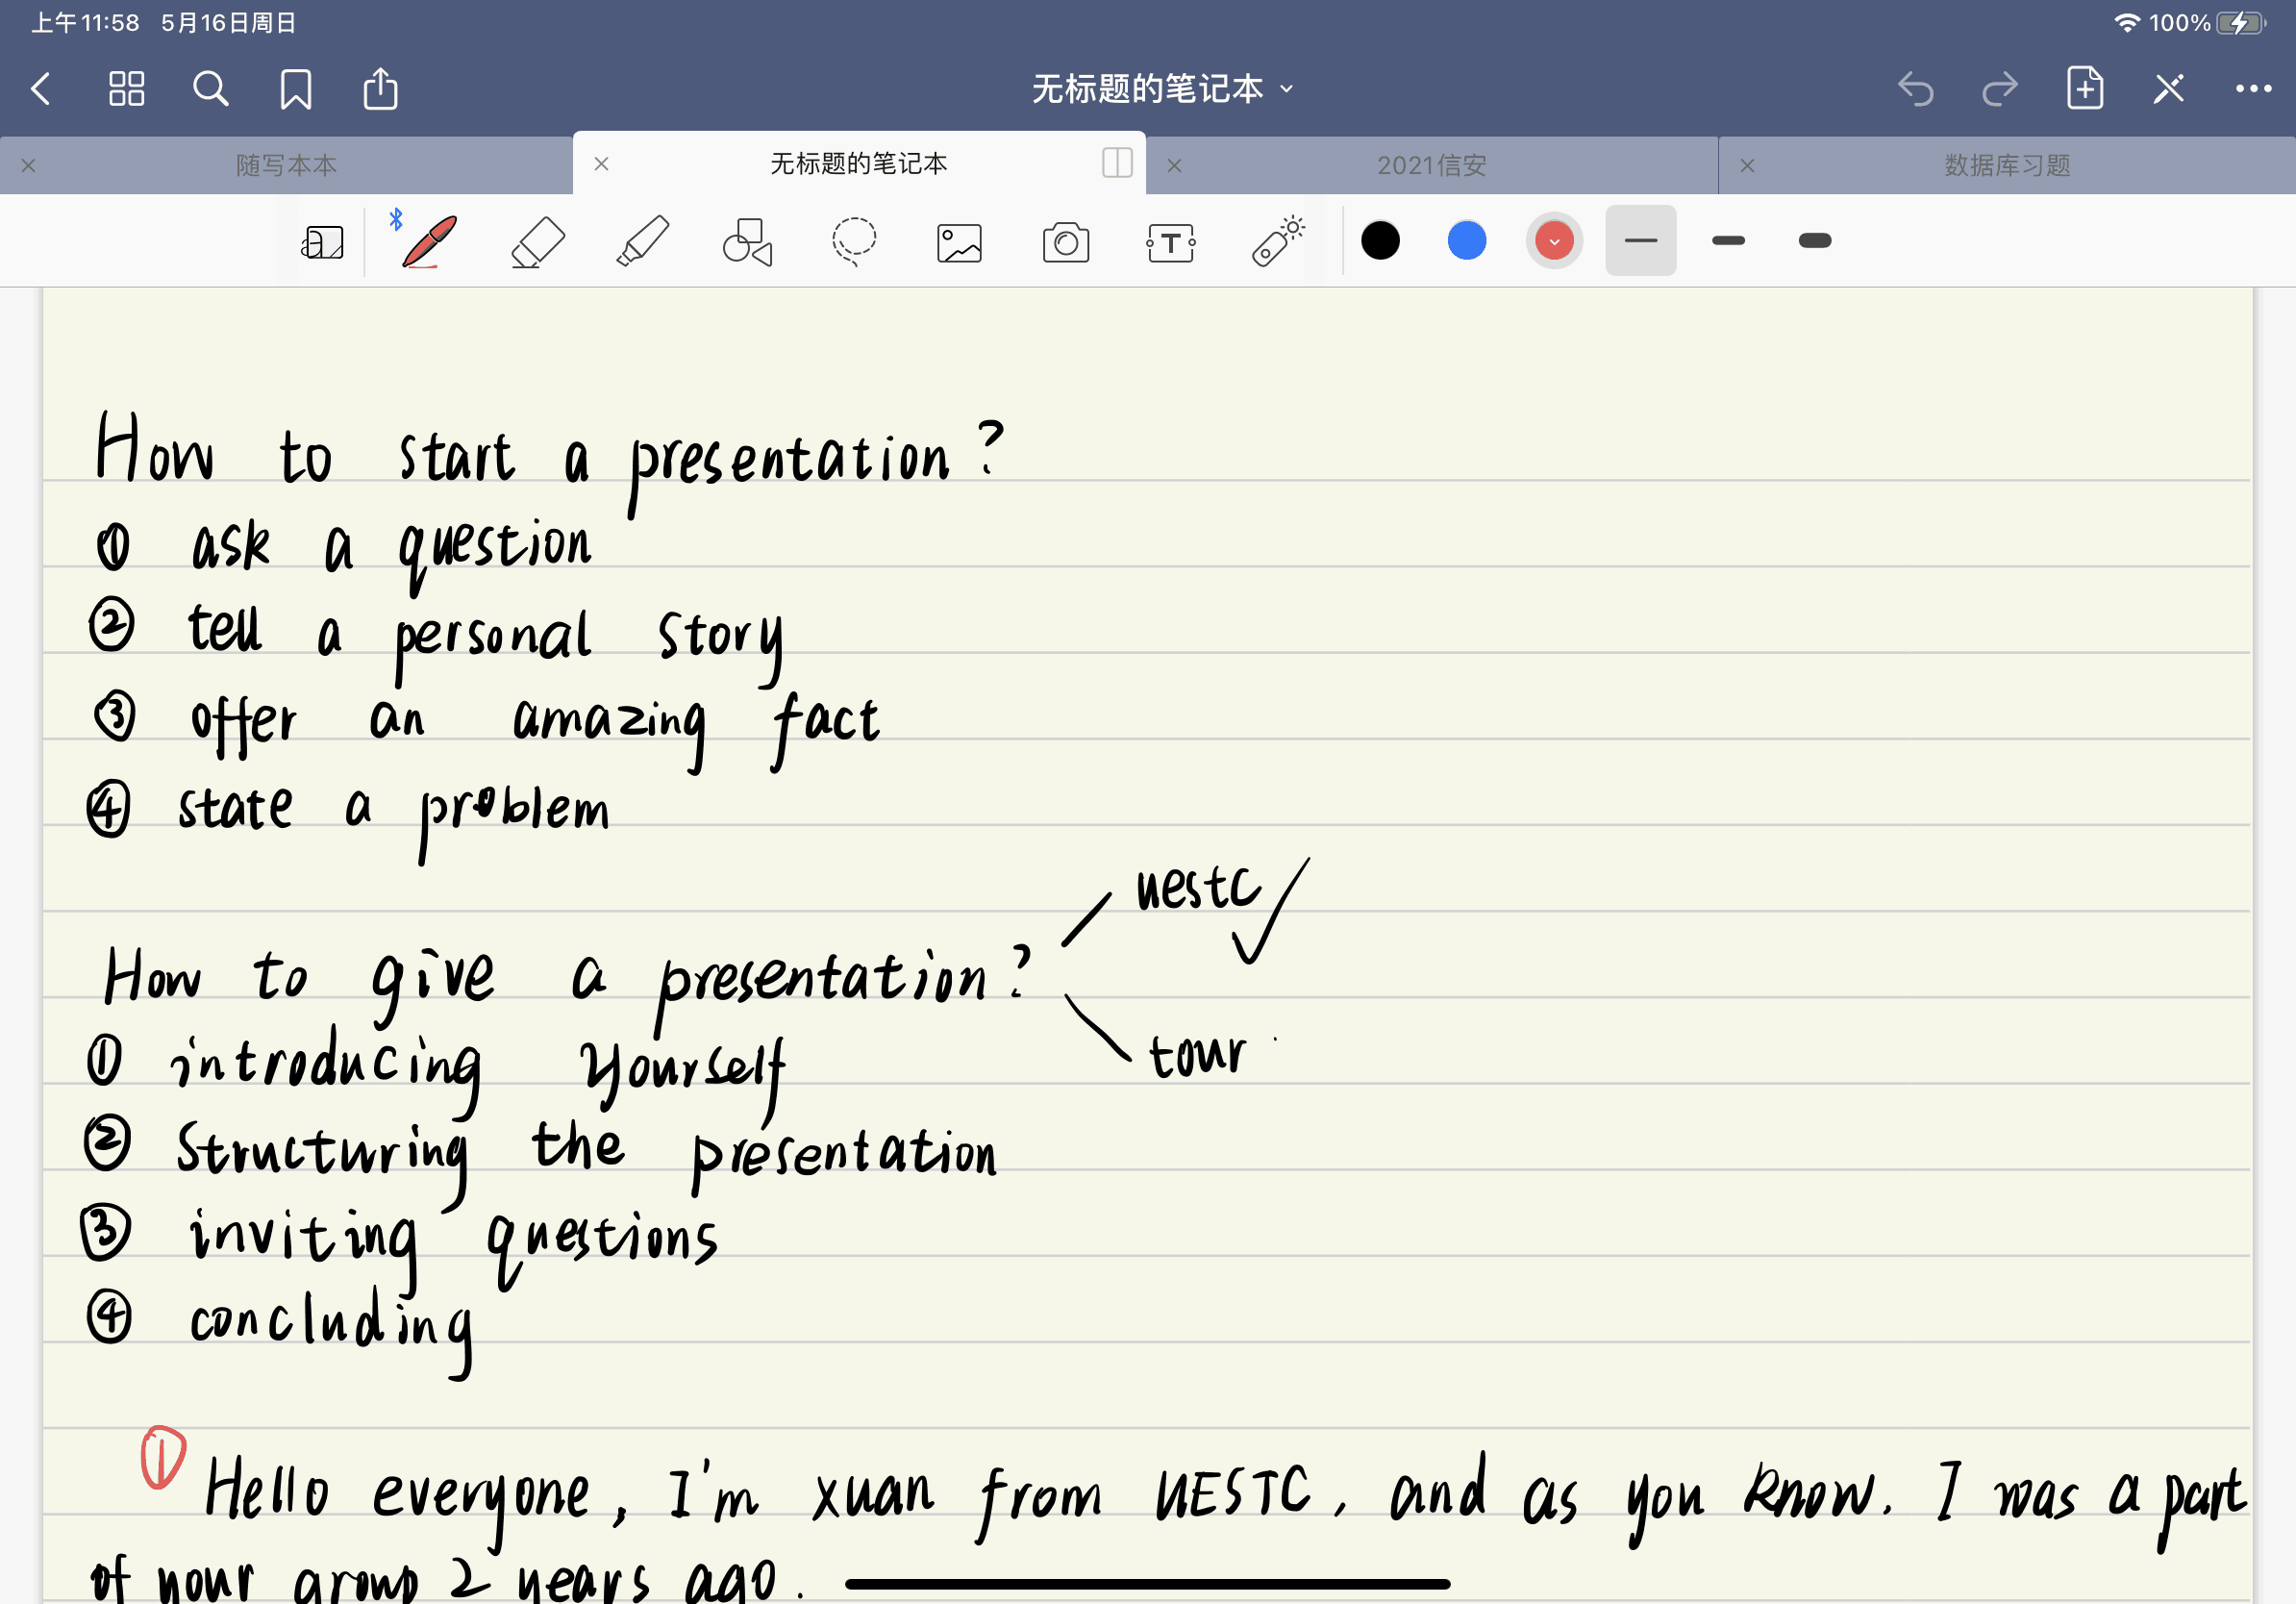 上午11:58 5月16日周日 100%
无标题的笔记本
随写本本 无标题的笔记本 2021信安 数据库习题
How to start a presentation?
① ask a question
② tell a personal story
③ offer an amazing fact
④ state a problem
uestc
How to give a presentation?
tour
① introducing yourself
② Structuring the presentation
③ inviting questions
④ concluding
① Hello everyone, I'm xuan from UESTC, and as you know. I was a part
of your group 2 years ago.